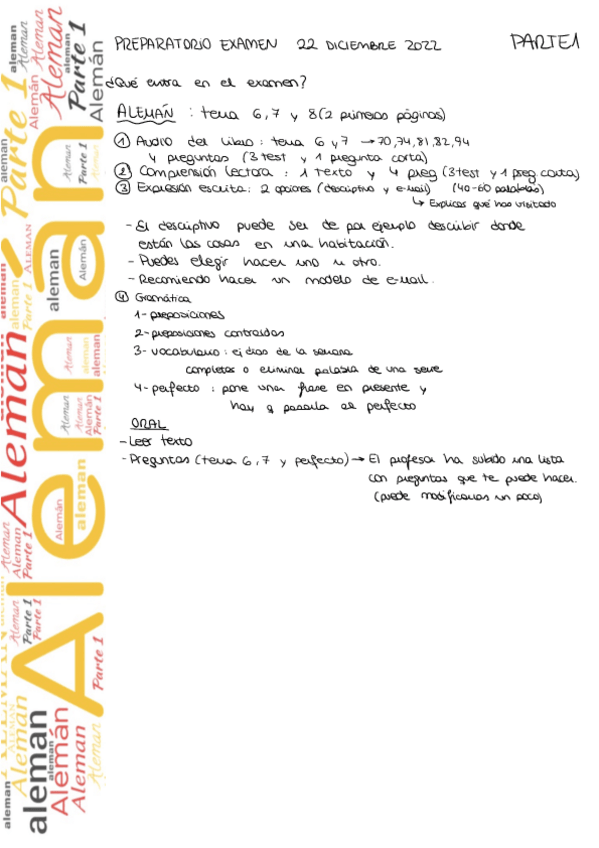 PREPARATORIO EXAMEN 22 DICIEMBRE 2022 PARTE 1
¿Qué entra en el examen?
ALEMÁN : tema 6, 7 y 8 (2 primeras páginas)
① Audio del libro : tema 6 y 7 → 70, 74, 81, 82, 94
4 preguntas (3 test y 1 pregunta corta)
② Comprensión lectora : 1 texto y 4 preg (3 test y 1 preg corta)
③ Expresión escrita : 2 opciones (descriptivo y e-mail) (40-60 palabras)
↳ Explicas qué has visitado
- El descriptivo puede ser de por ejemplo describir donde
están las cosas en una habitación.
- Puedes elegir hacer uno u otro.
- Recomiendo hacer un modelo de e-mail.
④ Gramática
1- preposiciones
2- preposiciones contraidas
3- vocabulario : ej dias de la semana
completas o eliminar palabra de una serie
4- perfecto : pone una frase en presente y
hay q pasarla al perfecto
ORAL
- Leer texto
- Preguntas (tema 6, 7 y perfecto) → El profesor ha subido una lista
con preguntas que te puede hacer.
(puede modificarlas un poco)
Alemán
Parte 1
aleman
Aleman
Alemán
Parte 1
alemán
ALEMAN